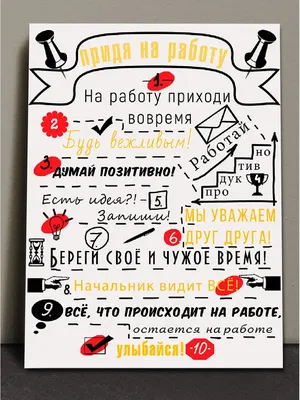 придя на работу
1.
На работу приходи
вовремя
2
Будь вежливым!
Работай
продуктивно
3.
ДУМАЙ ПОЗИТИВНО!
4
Есть идея?! -
Запиши!
5.
МЫ УВАЖАЕМ
ДРУГ ДРУГА!
6.
7
БЕРЕГИ СВОЁ И ЧУЖОЕ ВРЕМЯ!
8
Начальник видит ВСЁ!
9.
ВСЁ, ЧТО ПРОИСХОДИТ НА РАБОТЕ,
остается на работе
улыбайся! -10-